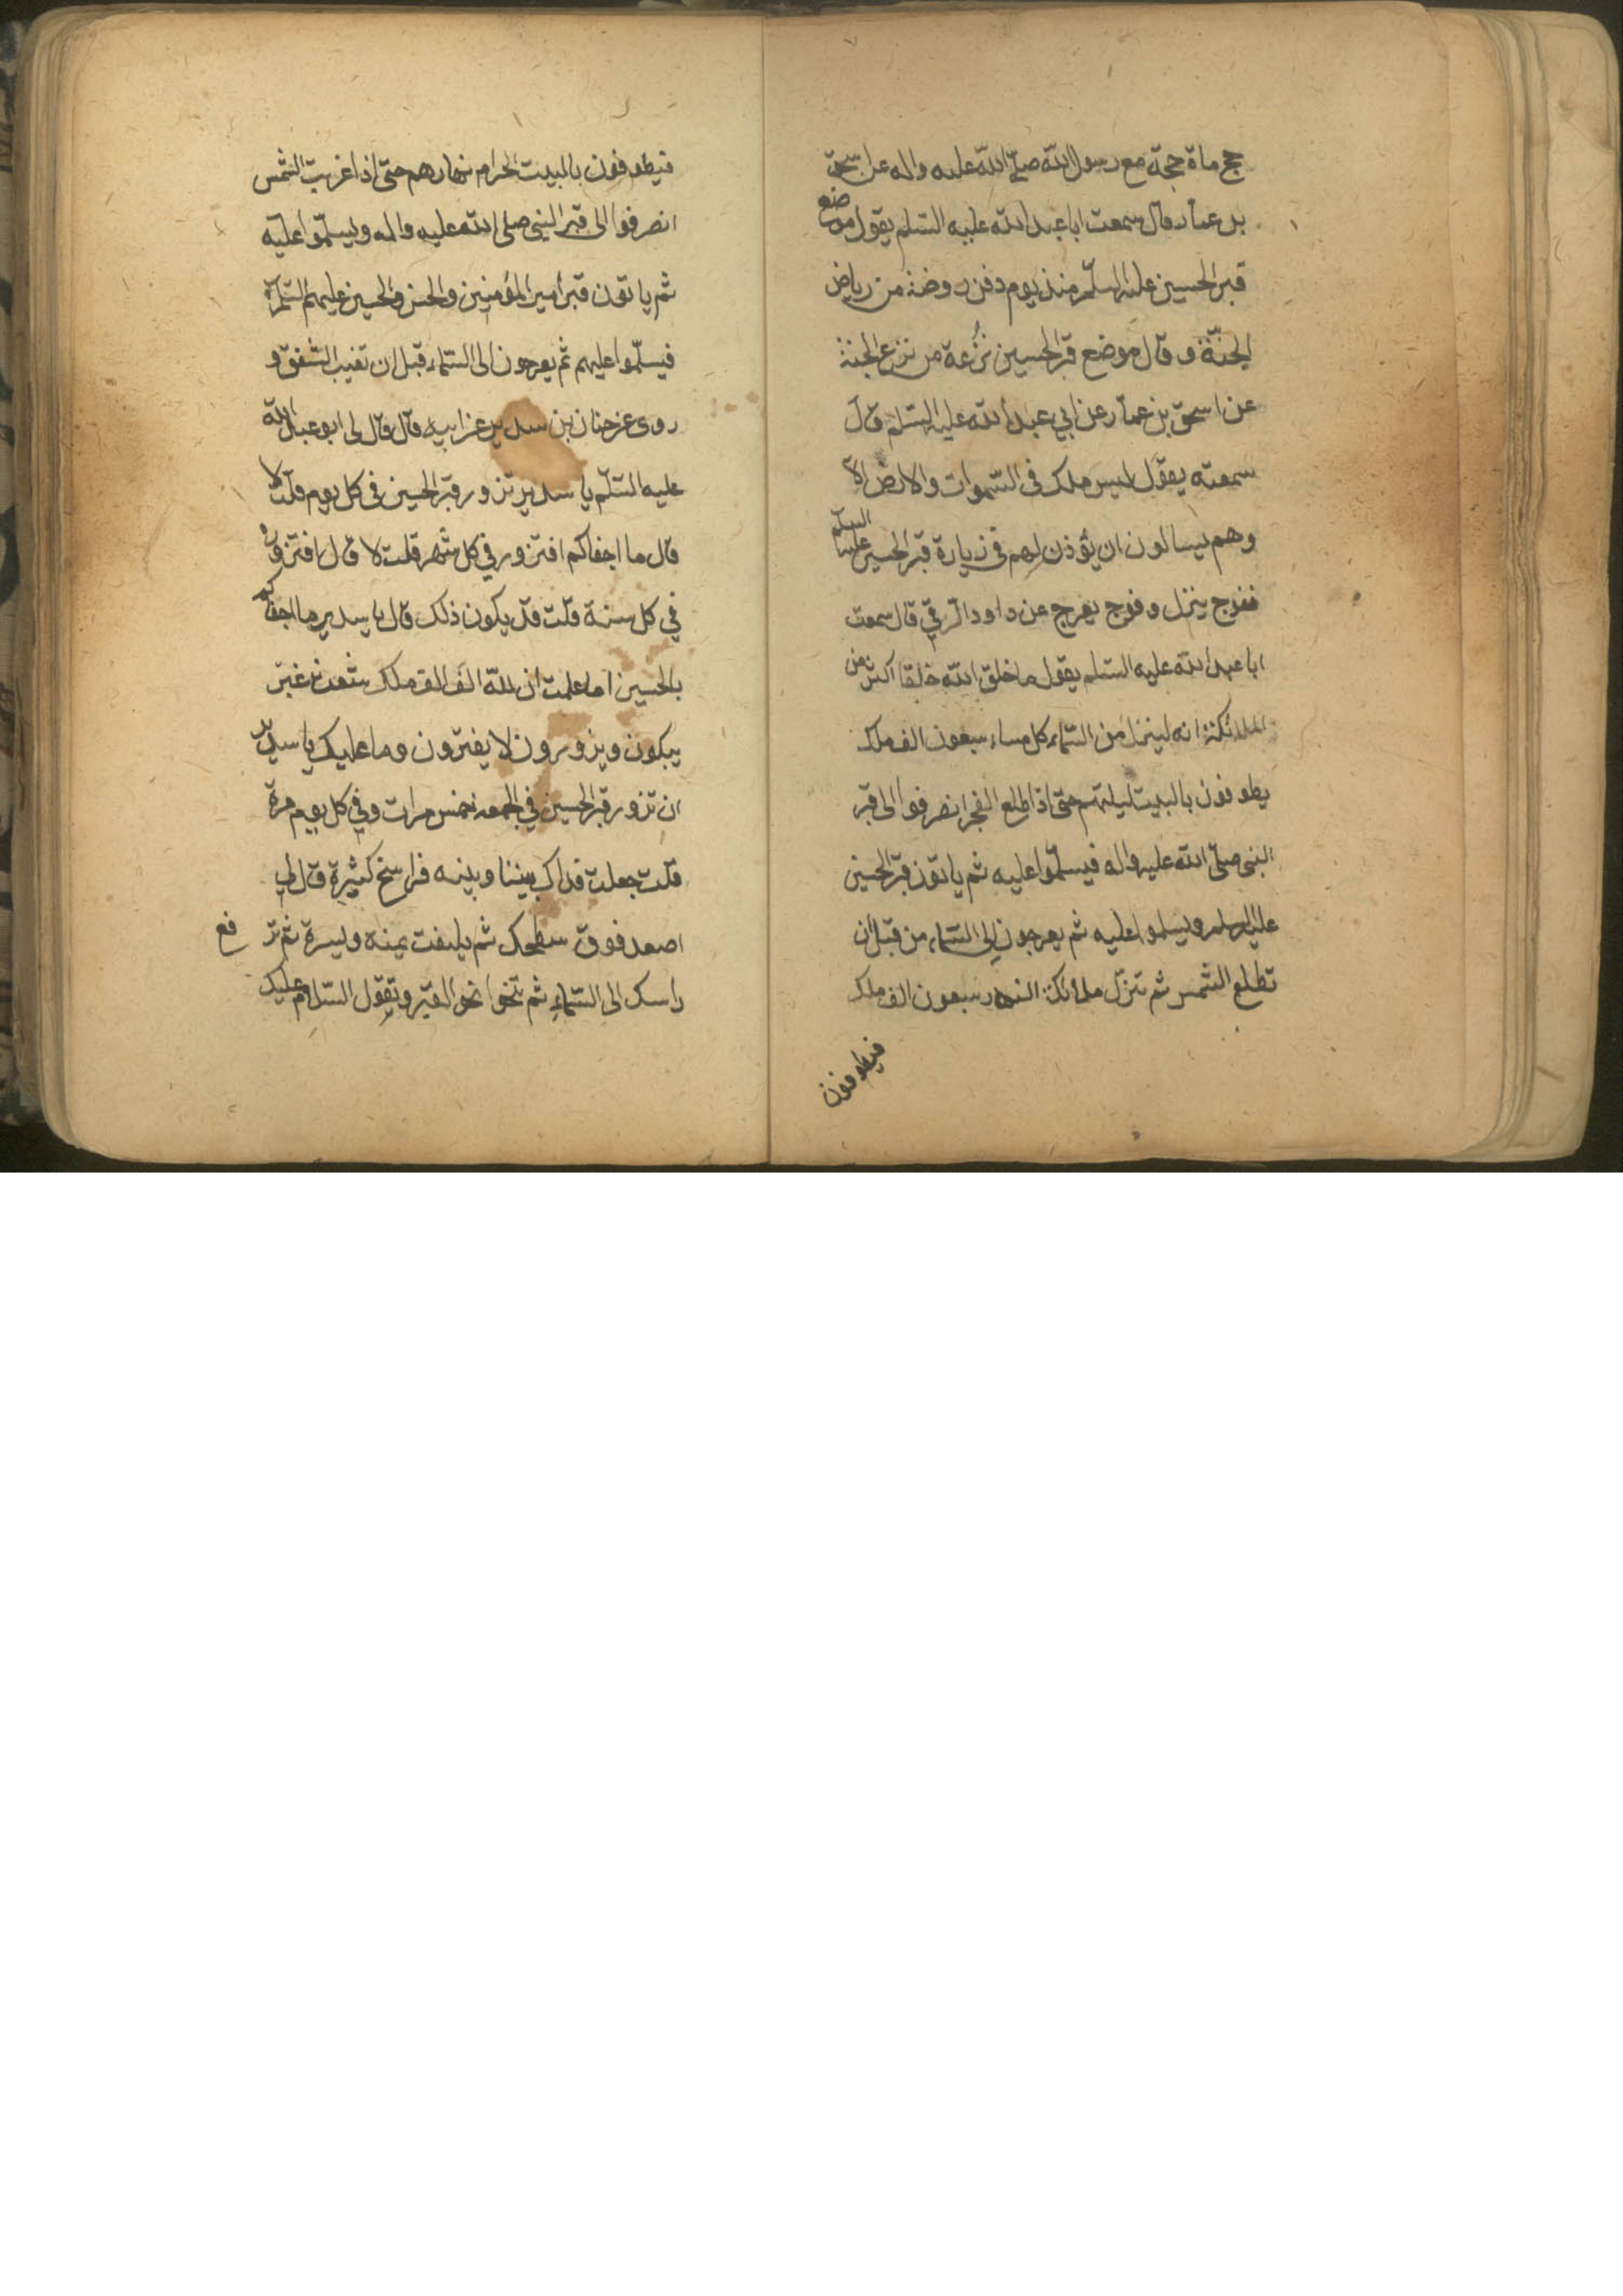 حج ماة حجة مع رسول الله صلى الله عليه واله عن اسحق
بن عمار قال سمعت ابا عبد الله عليه السلم يقول موضع
قبر الحسين عليه السلم منذ يوم دفن روضة من رياض
الجنة و قال موضع قبر الحسين ترعة من ترع الجنة
عن اسحق بن عمار عن ابي عبد الله عليه السلم قال
سمعته يقول ليس ملك في السموات والارض الا
وهم يسالون ان يؤذن لهم في زيارة قبر الحسين عليه السلم
ففوج ينزل وفوج يعرج عن داود الرقي قال سمعت
ابا عبد الله عليه السلم يقول ما خلق الله خلقا اكثر من
الملائكة انه لينزل من السماء كل مساء سبعون الف ملك
يطوفون بالبيت ليلتهم حتى اذا طلع الفجر انصرفوا الى قبر
النبي صلى الله عليه واله فيسلموا عليه ثم ياتون قبر الحسين
عليه السلم ويسلموا عليه ثم يعرجون الى السماء من قبل ان
تطلع الشمس ثم تنزل ملائكة النهار سبعون الف ملك
فيطوفون
فيطوفون بالبيت الحرام نهارهم حتى اذا غربت الشمس
انصرفوا الى قبر النبي صلى الله عليه واله ويسلموا عليه
ثم ياتون قبر أمير المؤمنين والحسن والحسين عليهم السلم
فيسلموا عليهم ثم يعرجون الى السماء قبل ان تغيب الشفق و
روى عن حنان بن سدير عن ابيه قال قال لى ابو عبد الله
عليه السلم يا سدير تزور قبر الحسين في كل يوم قلت لا
قال ما اجفاكم افتزور في كل شهر قلت لا قال افتزور
في كل سنة قلت قد يكون ذلك قال يا سدير ما اجفاكم
بالحسين اما علمت ان لله الف الف ملك شعث غبر
يبكون ويزورون لا يفترون وما عليك يا سدير
ان تزور قبر الحسين في الجمعه خمس مرات وفي كل يوم مرة
قلت جعلت فداك بيننا وبينه فراسخ كثيرة قال لي
اصعد فوق سطحك ثم يلتفت يمنه ويسرة ثم تر فع
راسك الى السماء ثم تنحوا نحو القبر وتقول السلام عليك